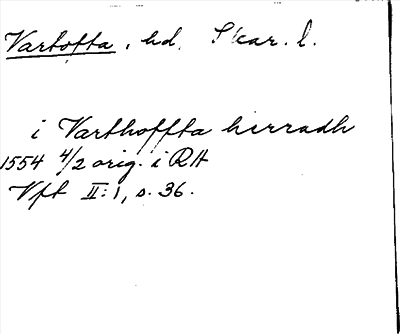 Vartofta, hd. Skar. l.
i Varthoffta herradh
1554 4/2 orig. i RA
Vft II:1, s. 36.